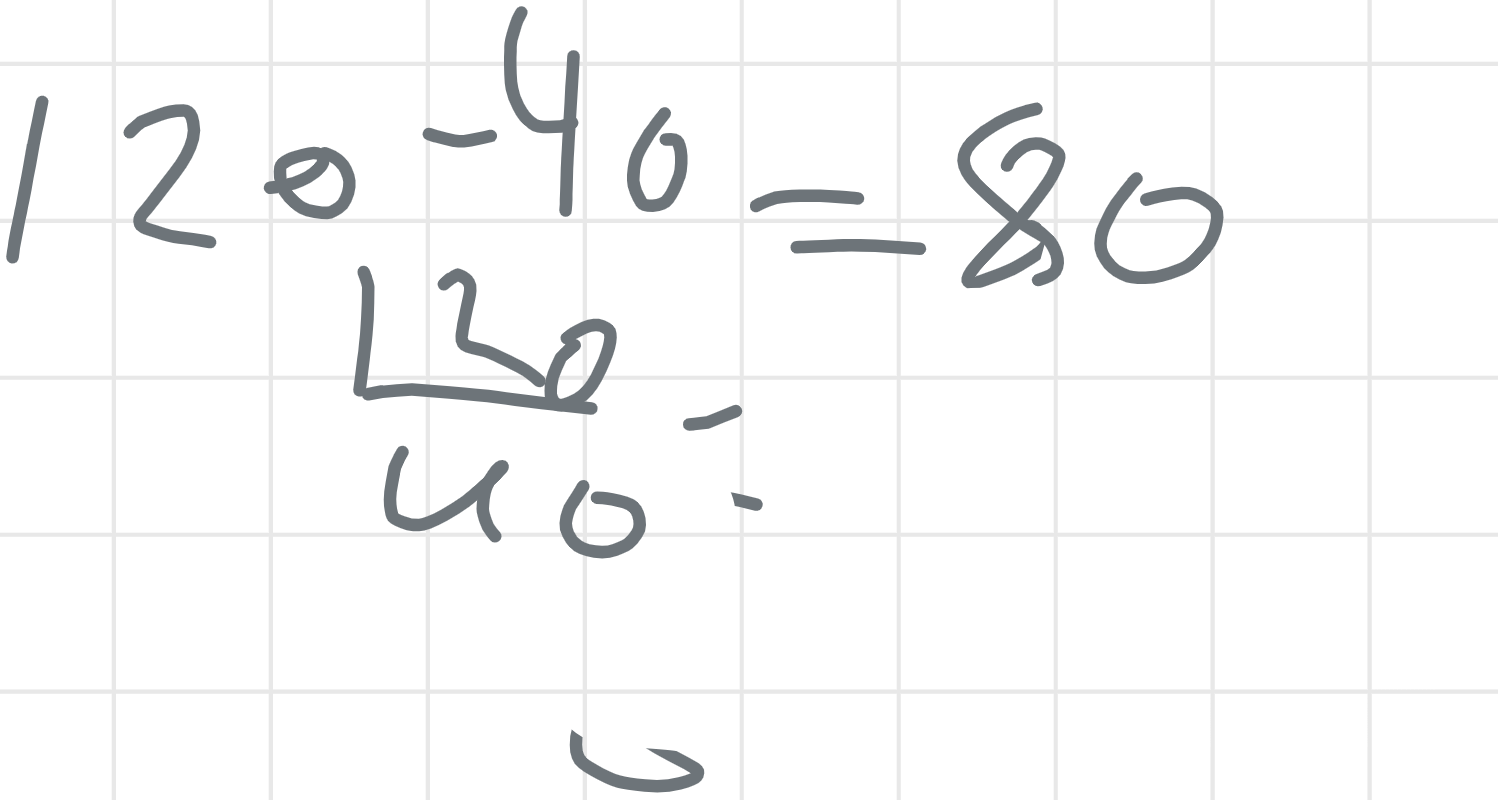 120-40=80
120
40 =